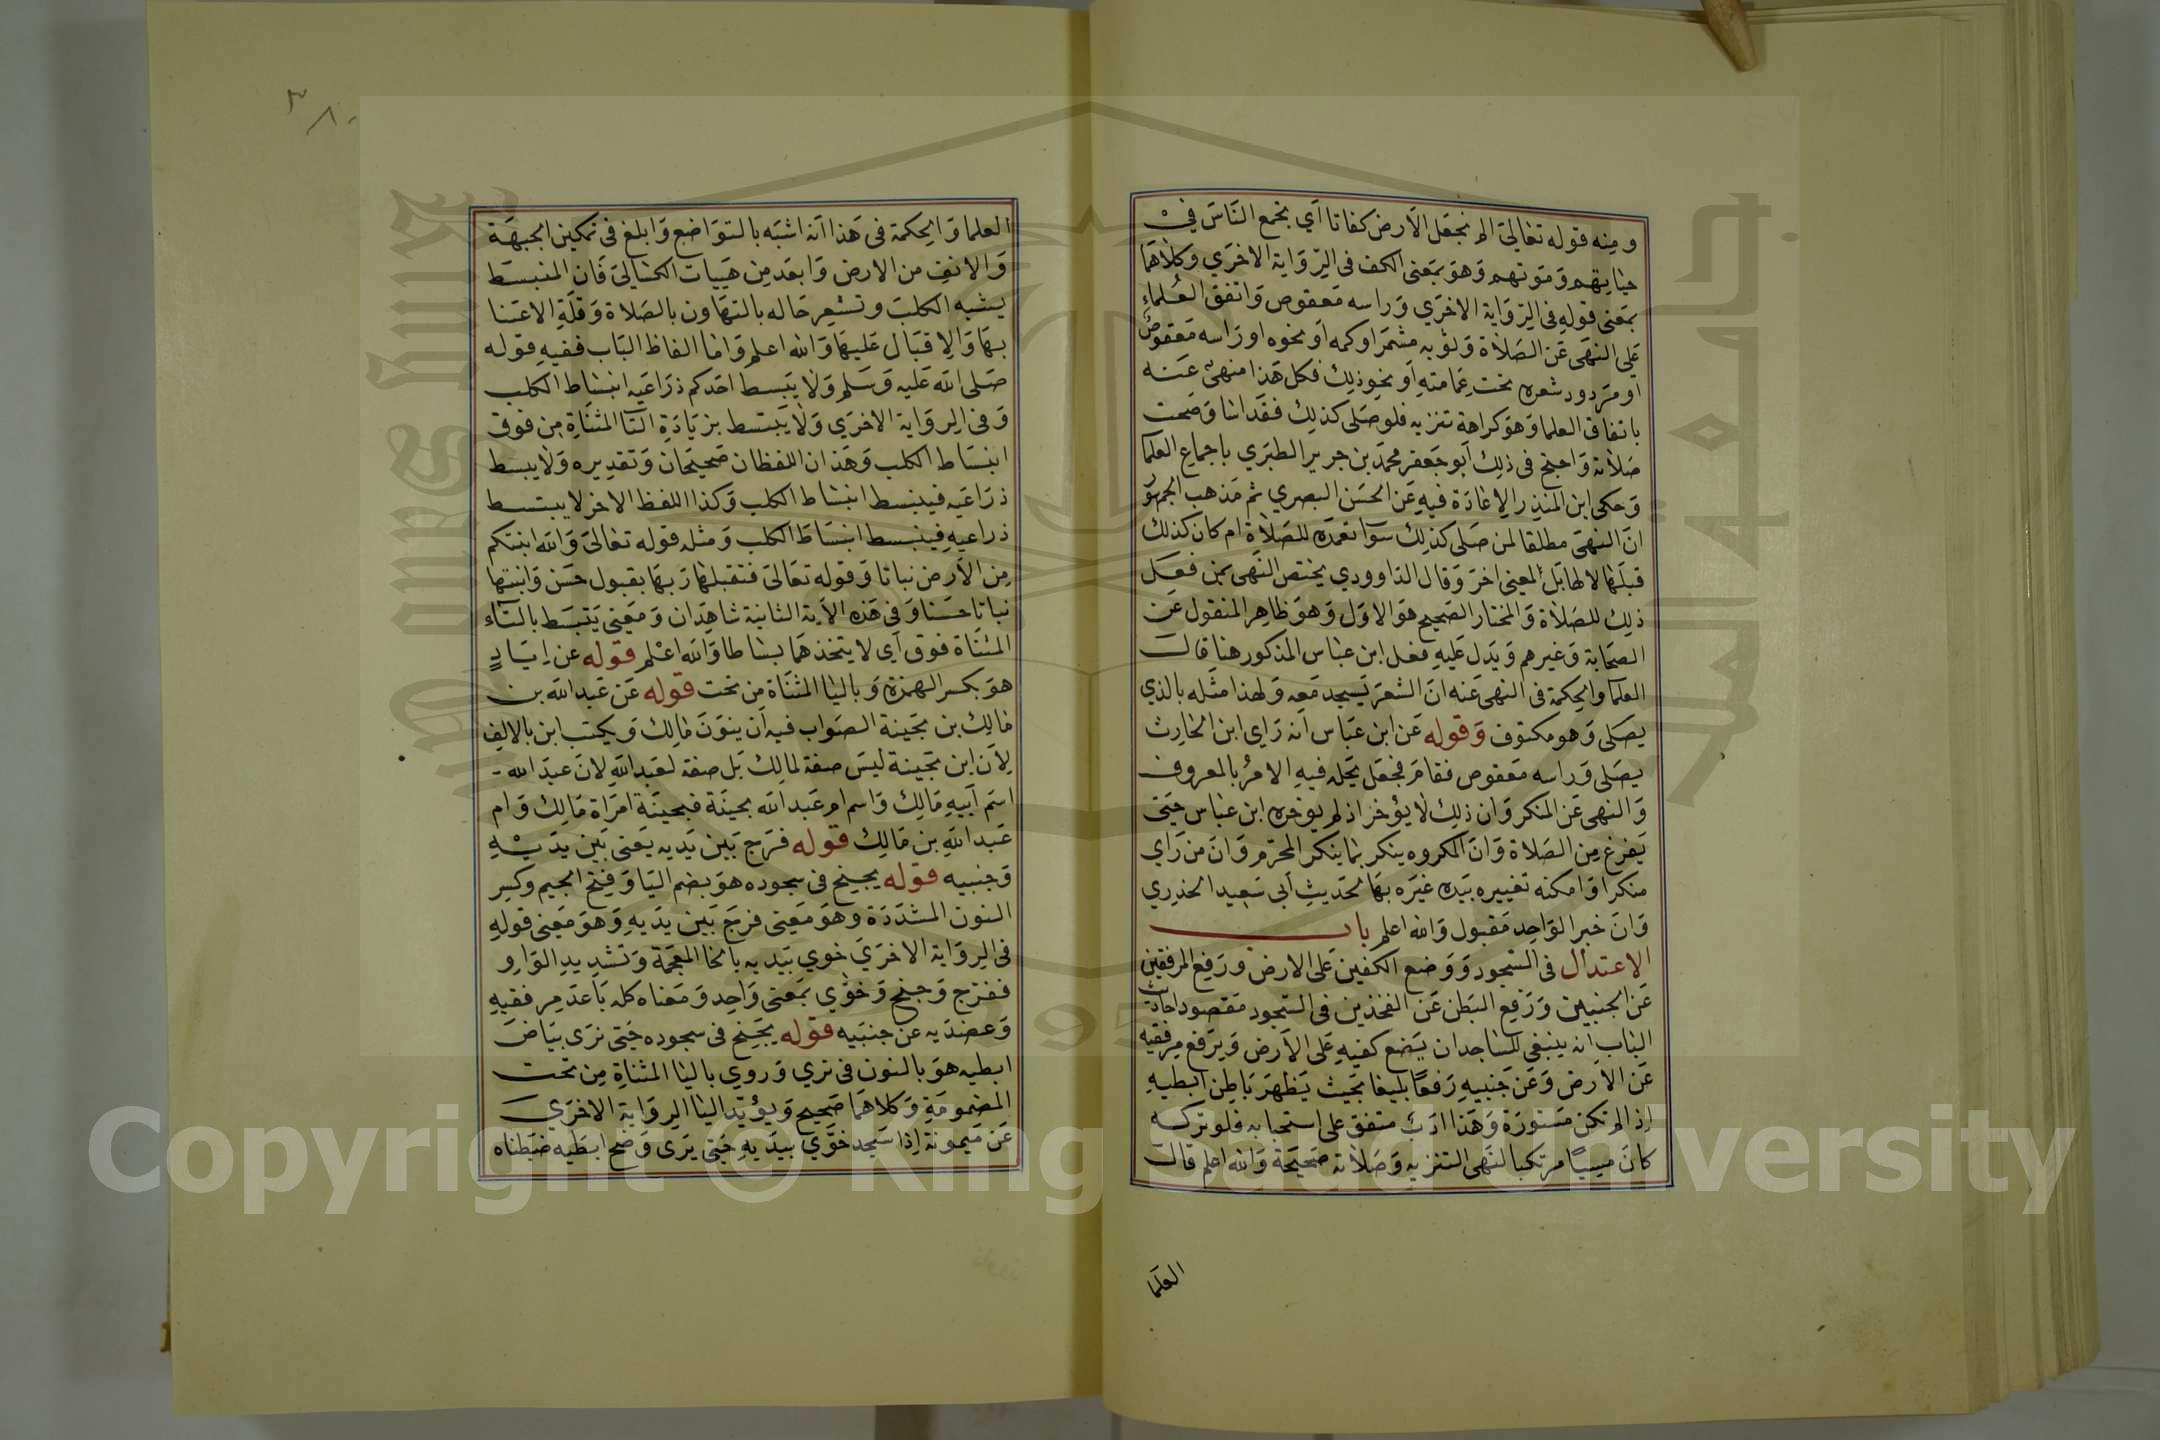 ومنه قوله تعالى الم نجعل الارض كفاتا اي نجمع الناس في
حياتهم وموتهم وهو بمعنى الكف في الرواية الاخري وكلاهما
بمعنى قوله في الرواية الاخري وراسه معقوص واتفق العلماء
على النهي عن الصلاة وثوبه مشمر او كمه او نحوه او راسه معقوص
او مردود شعره تحت عمامته او نحو ذلك فكل هذا منهي عنه
باتفاق العلما وهو كراهة تنزيه فلو صلى كذلك فقد اسا وصحت
صلاته واحتج في ذلك ابو جعفر محمد بن جرير الطبري باجماع العلما
وحكى ابن المنذر الاعادة فيه عن الحسن البصري ثم مذهب الجمهور
ان النهي مطلقا لمن صلى كذلك سوا تعمده للصلاة ام كان كذلك
قبلها لا لها بل لمعنى اخر وقال الداوودي يختص النهي بمن فعل
ذلك للصلاة والمختار الصحيح هو الاول وهو ظاهر المنقول عن
الصحابة وغيرهم ويدل عليه فعل ابن عباس المذكور هنا قال
العلما والحكمة في النهي عنه ان الشعر يسجد معه ولهذا مثله بالذي
يصلى وهو مكتوف وقوله عن ابن عباس انه راي ابن الحارث
يصلى وراسه معقوص فقام فجعل يحله فيه الامر بالمعروف
والنهي عن المنكر وان ذلك لا يؤخر اذ لم يؤخره ابن عباس حتى
يفرغ من الصلاة وان المكروه ينكر بما ينكر المحرم وان من راي
منكرا وامكنه تغييره بيده غيره بها لحديث ابي سعيد الخدري
وان خبر الواحد مقبول والله اعلم باب
الاعتدال في السجود ووضع الكفين على الارض ورفع المرفقين
عن الجنبين ورفع البطن عن الفخذين في السجود مقصود احاديث
الباب انه ينبغي للساجد ان يضع كفيه على الارض ويرفع مرفقيه
عن الارض وعن جنبيه رفعا بليغا بحيث يظهر باطن ابطيه
اذا لم تكن مستورة وهذا ادب متفق على استحبابه فلو تركه
كان مسيئا مرتكبا لنهي التنزيه وصلاته صحيحة والله اعلم قالت
العلما
٣٨٠
العلما والحكمة في هذا انه اشبه بالتواضع وابلغ في تمكين الجبهة
والانف من الارض وابعد من هيات الكسالى فان المنبسط
يشبه الكلب وتشعر حاله بالتهاون بالصلاة وقلة الاعتنا
بها والاقبال عليها والله اعلم واما الفاظ الباب ففيه قوله
صلى الله عليه وسلم ولا يبسط احدكم ذراعيه انبساط الكلب
وفي الرواية الاخري ولا يبتسط بزيادة التا المثناة من فوق
انبساط الكلب وهذان اللفظان صحيحان وتقديره ولا يبسط
ذراعيه فينبسط انبساط الكلب وكذا اللفظ الاخر لا يبتسط
ذراعيه فينبسط انبساط الكلب ومثله قوله تعالى والله انبتكم
من الارض نباتا وقوله تعالى فتقبلها ربها بقبول حسن وانبتها
نباتا حسنا وفي هذه الاية الثانية شاهدان ومعنى يتبسط بالتاء
المثناة فوق اي لا يتخذهما بساطا والله اعلم قوله عن اياد
هو بكسر الهمزة وباليا المثناة من تحت قوله عن عبد الله بن
مالك بن بحينة الصواب فيه ان ينون مالك ويكتب ابن بالالف
لان ابن بحينة ليس صفة لمالك بل صفة لعبد الله لان عبد الله
اسم ابيه مالك واسم ام عبد الله بحينة فبحينة امراة مالك وام
عبد الله بن مالك قوله فرج بين يديه يعنى بين يديه
وجنبيه قوله يجنح في سجوده هو بضم اليا وفتح الجيم وكسر
النون المشددة وهو معنى فرج بين يديه وهو معنى قوله
في الرواية الاخري خوي بيديه بالخا المعجمة وتشديد الواو
ففرج وجنح وخوي بمعنى واحد ومعناه كله باعد مرفقيه
وعضديه عن جنبيه قوله يجنح في سجوده حتى نرى بياض
ابطيه هو بالنون في نري وروي باليا المثناة من تحت
المضمومة وكلاهما صحيح ويؤيد اليا الرواية الاخري
عن ميمونة اذا سجد خوي بيديه حتى يرى وضح ابطيه ضبطناه
Copyright © King Saud University